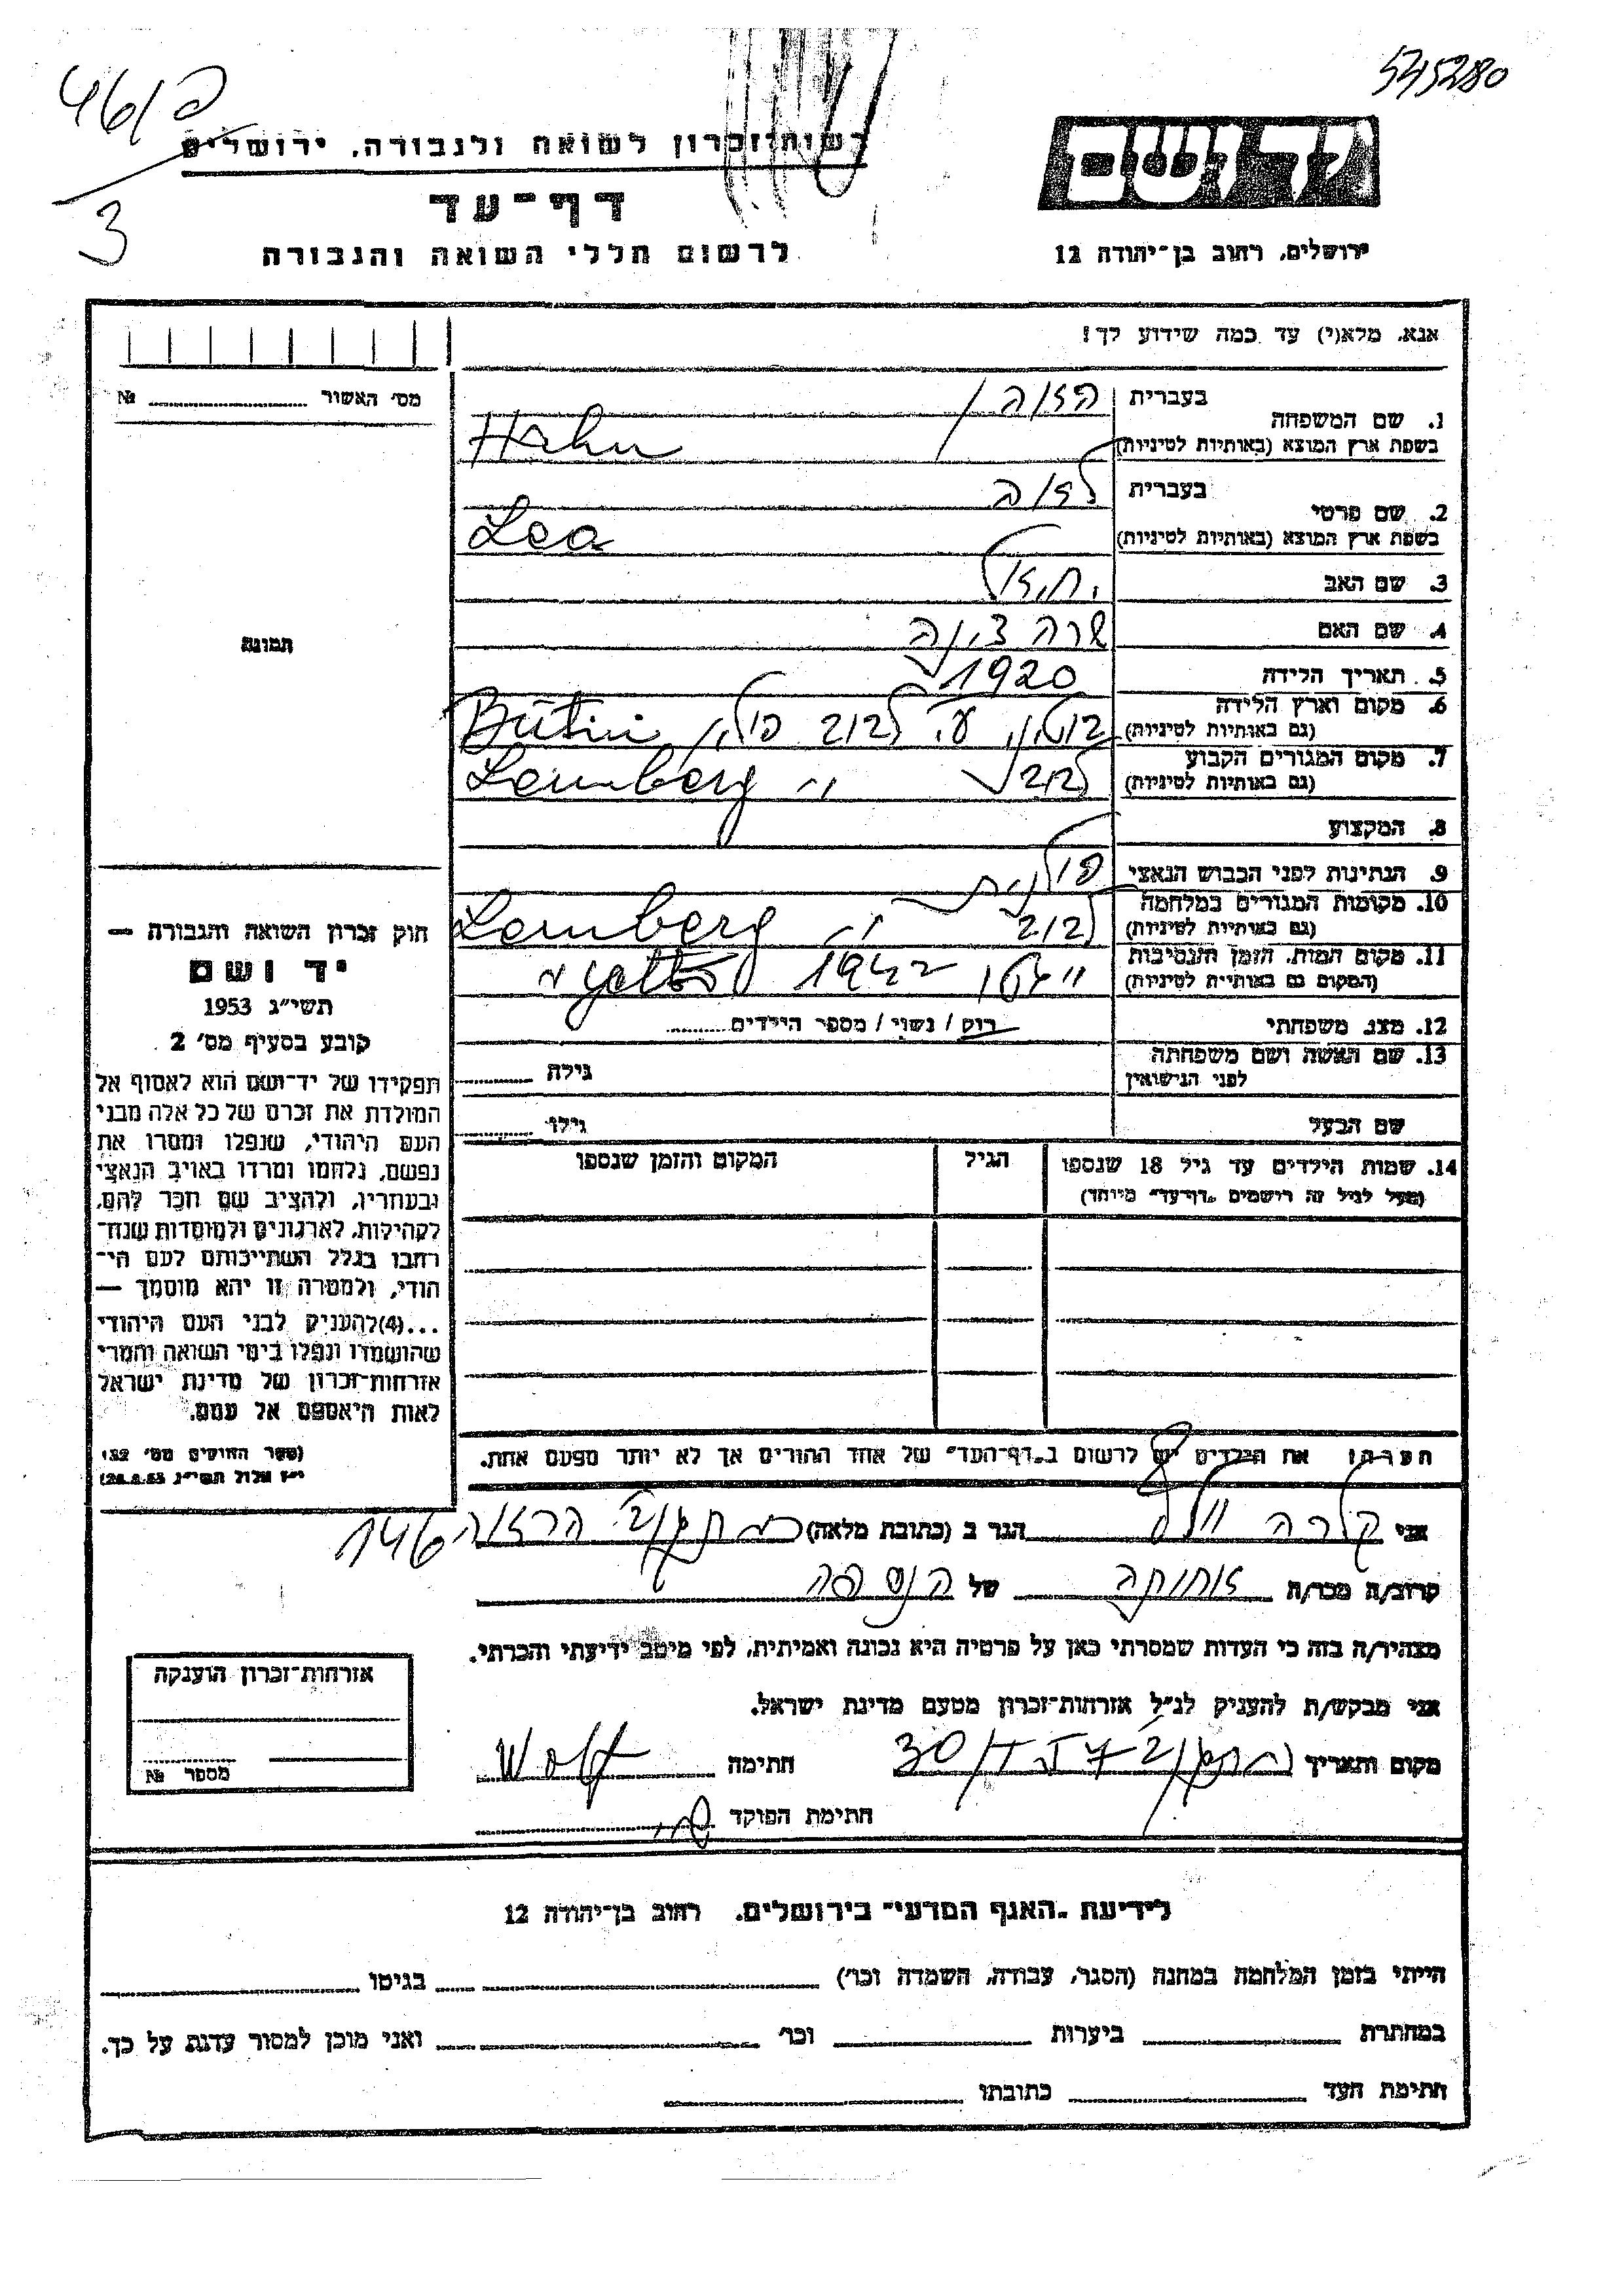 545280
461פ
3
רשות־זכרון לשואה ולגבורה, ירושלים
דף־עד
לרשום חללי השואה והגבורה
יד ושם
ירושלים, רחוב בן־יהודה 12
אנא, מלא(י) עד כמה שידוע לך!
מס׳ האשור № ........
תמונה
1. שם המשפחה
בעברית
בשפת ארץ המוצא (באותיות לטיניות) Hahn
2. שם פרטי
בעברית לאה
בשפת ארץ המוצא (באותיות לטיניות) Lea
3. שם האב
4. שם האם שרה
5. תאריך הלידה 1920
6. מקום וארץ הלידה
(גם באותיות לטיניות) ע״י לבוב פולין
7. מקום המגורים הקבוע
(גם באותיות לטיניות) לבוב Lemberg
8. המקצוע
9. הנתינות לפני הכבוש הנאצי פולנית
10. מקומות המגורים במלחמה
(גם באותיות לטיניות) לבוב Lemberg
11. מקום המות, הזמן והנסיבות
(המקום גם באותיות לטיניות) 1942
12. מצב משפחתי רוק / נשוי / מספר הילדים ........
13. שם האשה ושם משפחתה
לפני הנישואין
גילה ........
שם הבעל גילו ........
14. שמות הילדים עד גיל 18 שנספו
(מעל לגיל זה רושמים „דף־עד״ מיוחד)
הגיל
המקום והזמן שנספו
הערה: את הילדים יש לרשום ב„דף־העד״ של אחד ההורים אך לא יותר מפעם אחת.
חוק זכרון השואה והגבורה —
יד ושם
תשי״ג 1953
קובע בסעיף מס׳ 2
תפקידו של יד־ושם הוא לאסוף אל
המולדת את זכרם של כל אלה מבני
העם היהודי, שנפלו ומסרו את
נפשם, נלחמו ומרדו באויב הנאצי
ובעוזריו, ולהציב שם וזכר להם,
לקהילות, לארגונים ולמוסדות שנח־
רבו בגלל השתייכותם לעם הי־
הודי, ולמטרה זו יהא מוסמך —
...(4) להעניק לבני העם היהודי
שהושמדו ונפלו בימי השואה והמרי
אזרחות־זכרון של מדינת ישראל
לאות היאספם אל עמם.
(ספר החוקים מס׳ 132
י״ז אלול תשי״ג 28.8.53)
אני קלרה וולף הגר ב (כתובת מלאה) הרואה 146
קרוב/ה מכר/ה אחותה של הנספה
מצהיר/ה בזה כי העדות שמסרתי כאן על פרטיה היא נכונה ואמיתית, לפי מיטב ידיעתי והכרתי.
אני מבקש/ת להעניק לנ״ל אזרחות־זכרון מטעם מדינת ישראל.
מקום ותאריך חתימה Wolf
חתימת הפוקד
אזרחות־זכרון הוענקה
מספר №
לידיעת „האגף המדעי״ בירושלים, רחוב בן־יהודה 12
הייתי בזמן המלחמה במחנה (הסגר, עבודה, השמדה וכר׳) ........ בגיטו ........
במחתרת ........ ביערות ........ וכר׳ ........ ואני מוכן למסור עדות על כך.
חתימת העד ........ כתובתו ........